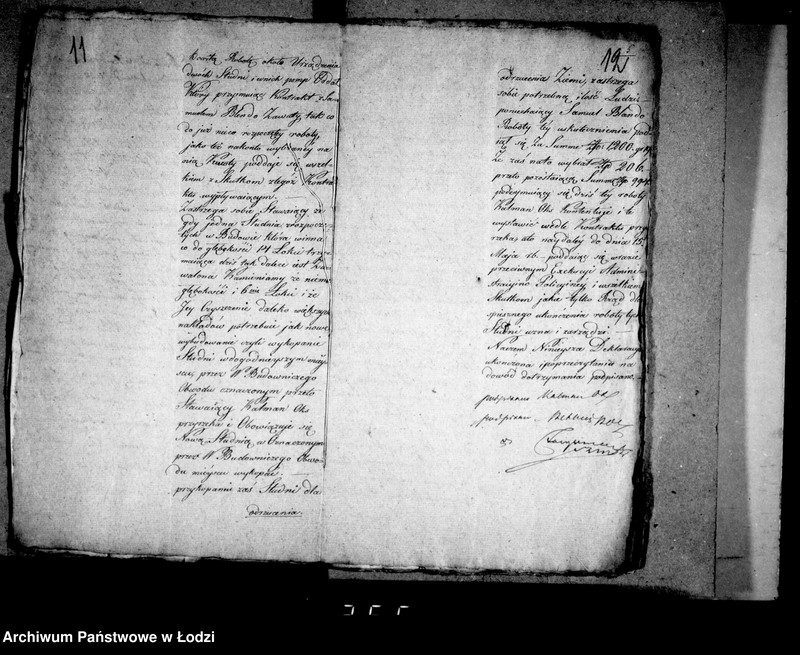 11
Robotę około Urządzenia
dwóch Studni i wnich pomp Oddał
Który przyjmując Kontrakt z Sa-
muelem Blendo Zawarty, tak co
do już nieco rozpoczętey roboty
jako też nakońtu wybraney na
nią Kwoty poddaje się wszel-
kiem z Skutkom z tegoż Kontra
ktu wypływaiącym.
Zastrzega sobie Stawaiący że
gdy jedna Studnia rozpoczę-
tych w Budowie która winna
co do głębokości 14 Łokci trzy-
maiąca dziś tak dalece iest Za
walona Kamieniamy że niema
głębokości i Łokci i że
Jey Czyszczenie daleko większych
nakładów potrzebuie jak nowe
wybudowanie czyli wykopanie
Studni wdogodnieyszym miey-
scu, przez W Budowniczego
Obwodu oznaczonym przeto
Stawaiący Kalman Oks
przyrzeka i Obowiązuje się
Nową Studnią w Oznaczonym
przez W Budowniczego Obwo-
du mieyscu wykopać.
przykopaniu zaś Studni dla
odrzucania
12
odrzucania Ziemi, zastrzega
sobie potrzebną ilość Ludzi
Samuel Blando
Roboty tey uskutecznienia pod
iął się Za Summę 1200.
Że zaś nato wybrał 206.
przeto pozostaiącą Summę
podeymuiący się dziś tey roboty
Kalman Oks Kontentuje i te
wystawić wedle Kontraktu przy
rzeka, ale naydaley do dnia 15
Maja rb. poddaiąc się wrazie
przeciwnym Exekucyi Admini-
stracyino Policyiney i wszelkim
Skutkom jakie tylko Rząd dla
spiesznego ukończenia roboty tych
Studni uzna i zarządzi
Naczem Ninieysza Deklaracya
ukończona i poprzeczytaniu na
dowód dotrzymania podpisano.
podpisano Kalman Ox
podpisano
Archiwum Państwowe w Łodzi